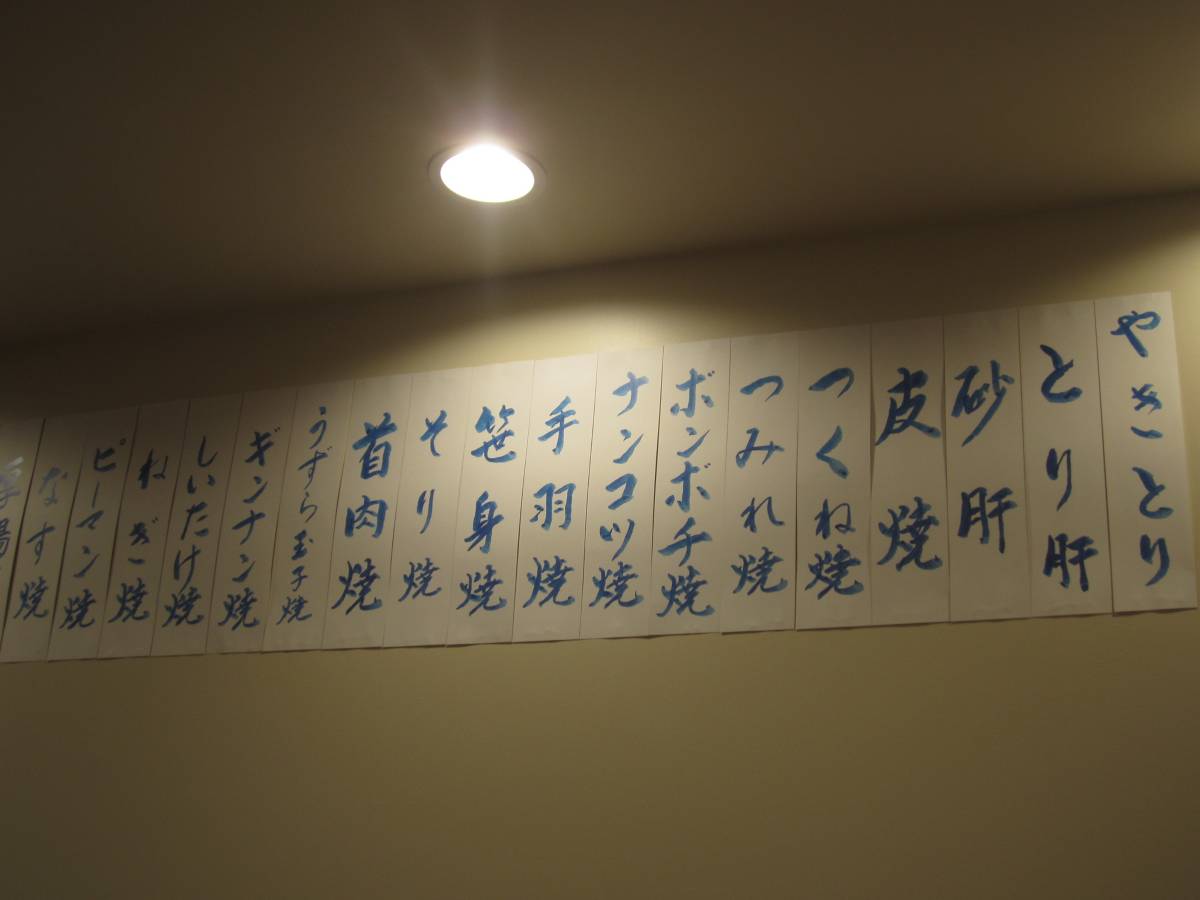 やきとり
とり肝
砂肝
皮焼
つくね焼
つみれ焼
ボンボチ焼
ナンコツ焼
手羽焼
笹身焼
そり焼
首肉焼
うずら玉子焼
ギンナン焼
しいたけ焼
ねぎ焼
ピーマン焼
なす焼